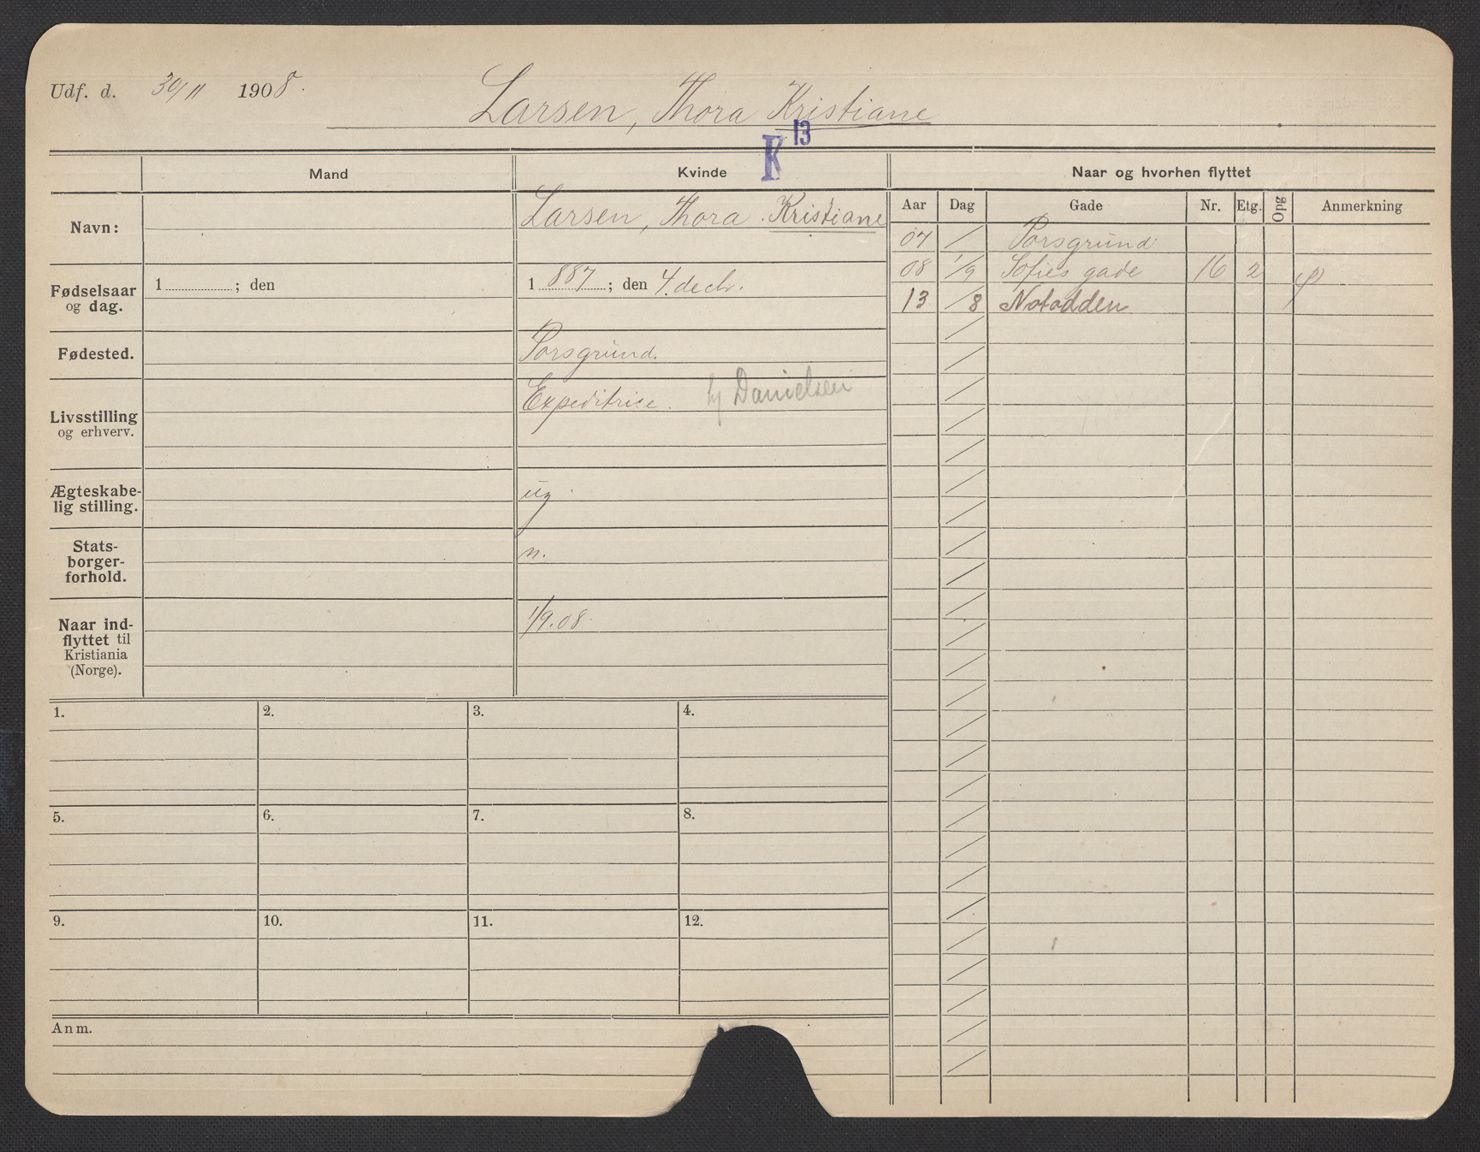 Udf. d. 30/11 1908.
Larsen, Thora Kristiane
K 13
Mand
Kvinde
Naar og hvorhen flyttet
Aar Dag Gade Nr. Etg. Opg Anmerkning
Navn:
Larsen, Thora Kristiane
Fødselsaar og dag.
1 ; den
1887; den 4. decbr.
Fødested.
Porsgrund.
Livsstilling og erhverv.
Expeditrice. hj Danielsen
Ægteskabe-
lig stilling.
ug.
Stats-
borger-
forhold.
n.
Naar ind-
flyttet til
Kristiania
(Norge).
1/9.08.
07 / Porsgrund
08 1/9 Sofies gade 16 2
13 /8 Notodden
1. 2. 3. 4.
5. 6. 7. 8.
9. 10. 11. 12.
Anm.